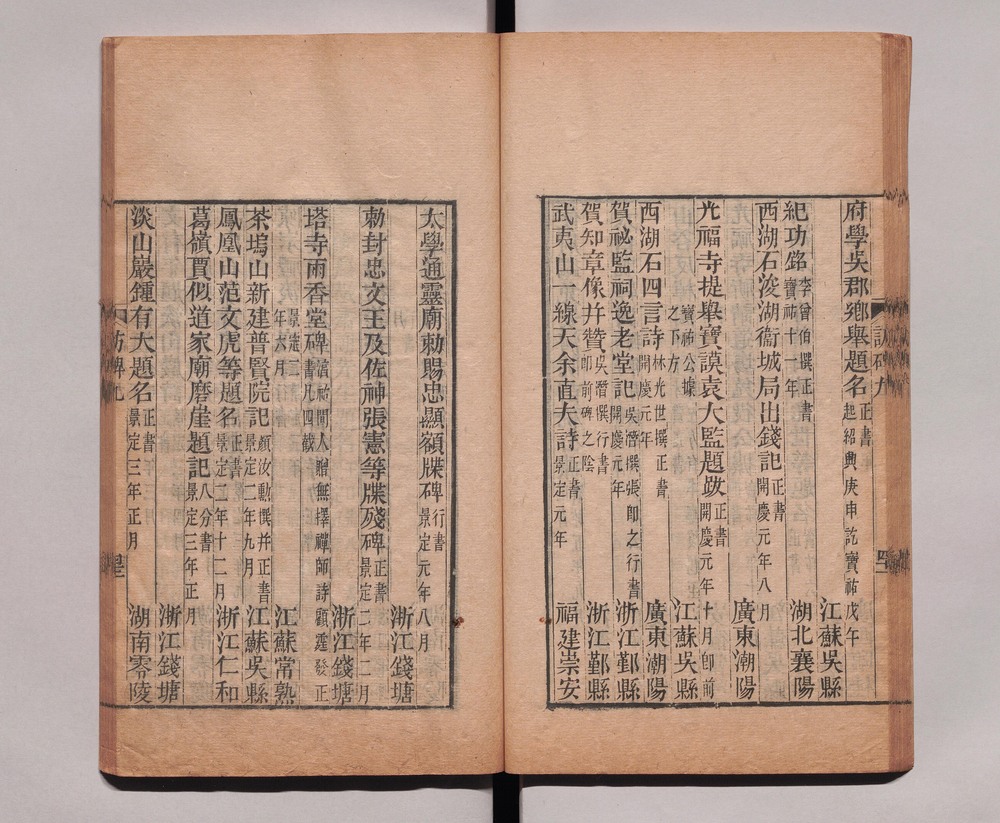 府學吳郡鄉舉題名 正書 起紹興庚申訖寶祐戊午 江蘇吳縣
紀功銘 李曾伯撰正書 寶祐十一年 湖北襄陽
西湖石浚湖衞城局出錢記 正書 開慶元年八月 廣東潮陽
光福寺提舉寶謨袁大監題跋 正書 開慶元年十月卽前
寶祐公據之下方 江蘇吳縣
西湖石四言詩 林光世撰正書 開慶元年 廣東潮陽
賀祕監祠逸老堂記 吳潛撰張卽之行書 開慶元年 浙江鄞縣
賀知章像并贊 吳潛撰行書 卽前碑之陰 浙江鄞縣
武夷山一線天余直夫詩 正書 景定元年 福建崇安
太學通靈廟勅賜忠顯額牒碑 行書 景定元年八月 浙江錢塘
勅封忠文王及佐神張憲等牒殘碑 正書 景定二年二月 浙江錢塘
塔寺雨香堂碑 書凡四截 顧霆發正
景定二年六月 江蘇常熟
茶塢山新建普賢院記 顏汝勳撰并正書 景定二年九月 江蘇吳縣
鳳凰山范文虎等題名 正書 景定二年十二月 浙江仁和
葛嶺賈似道家廟磨崖題記 八分書 景定三年正月 浙江錢塘
淡山巖鍾有大題名 正書 景定三年正月 湖南零陵
訪碑九